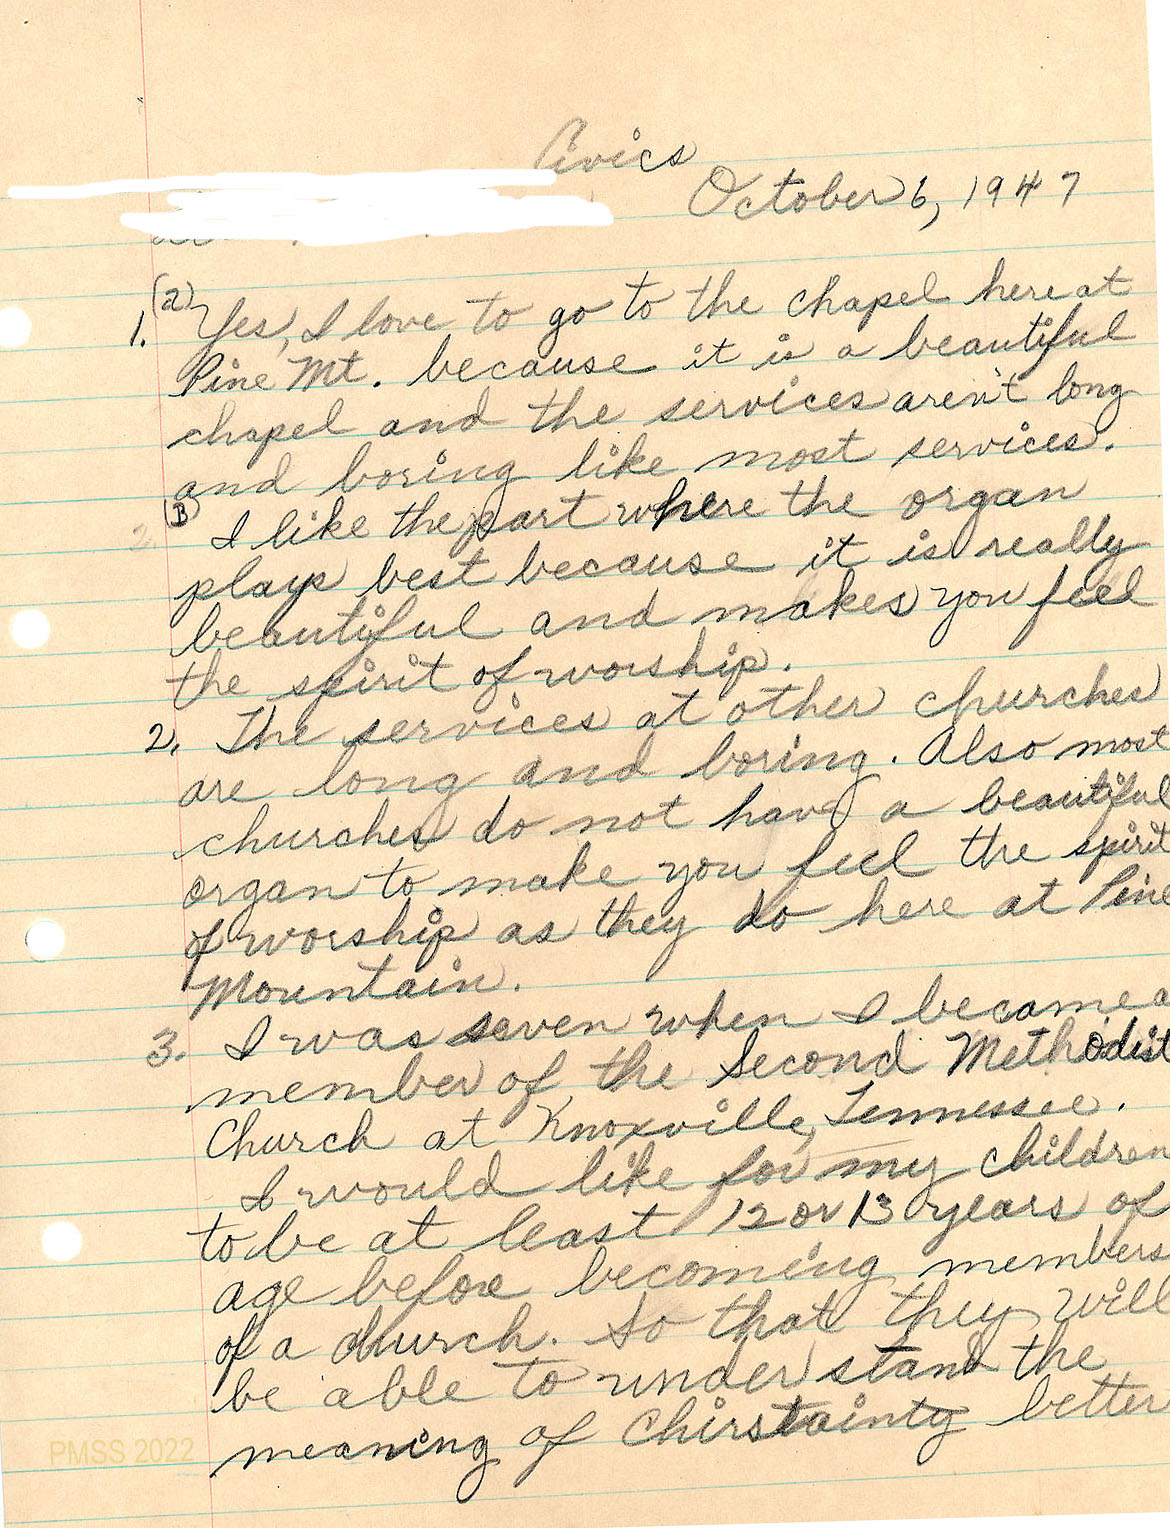 Civics
October 6, 1947
1. (a) Yes, I love to go to the chapel here at
Pine Mt. because it is a beautiful
chapel and the services aren't long
and boring like most services.
(B) I like the part where the organ
plays best because it is really
beautiful and makes you feel
the spirit of worship.
2. The services at other churches
are long and boring. Also most
churches do not have a beautiful
organ to make you feel the spirit
of worship as they do here at Pine
Mountain.
3. I was seven when I became a
member of the Second Methodist
Church at Knoxville, Tennessee.
I would like for my children
to be at least 12 or 13 years of
age before becoming members
of a church. So that they will
be able to understand the
meaning of Chirstainty better
PMSS 2022